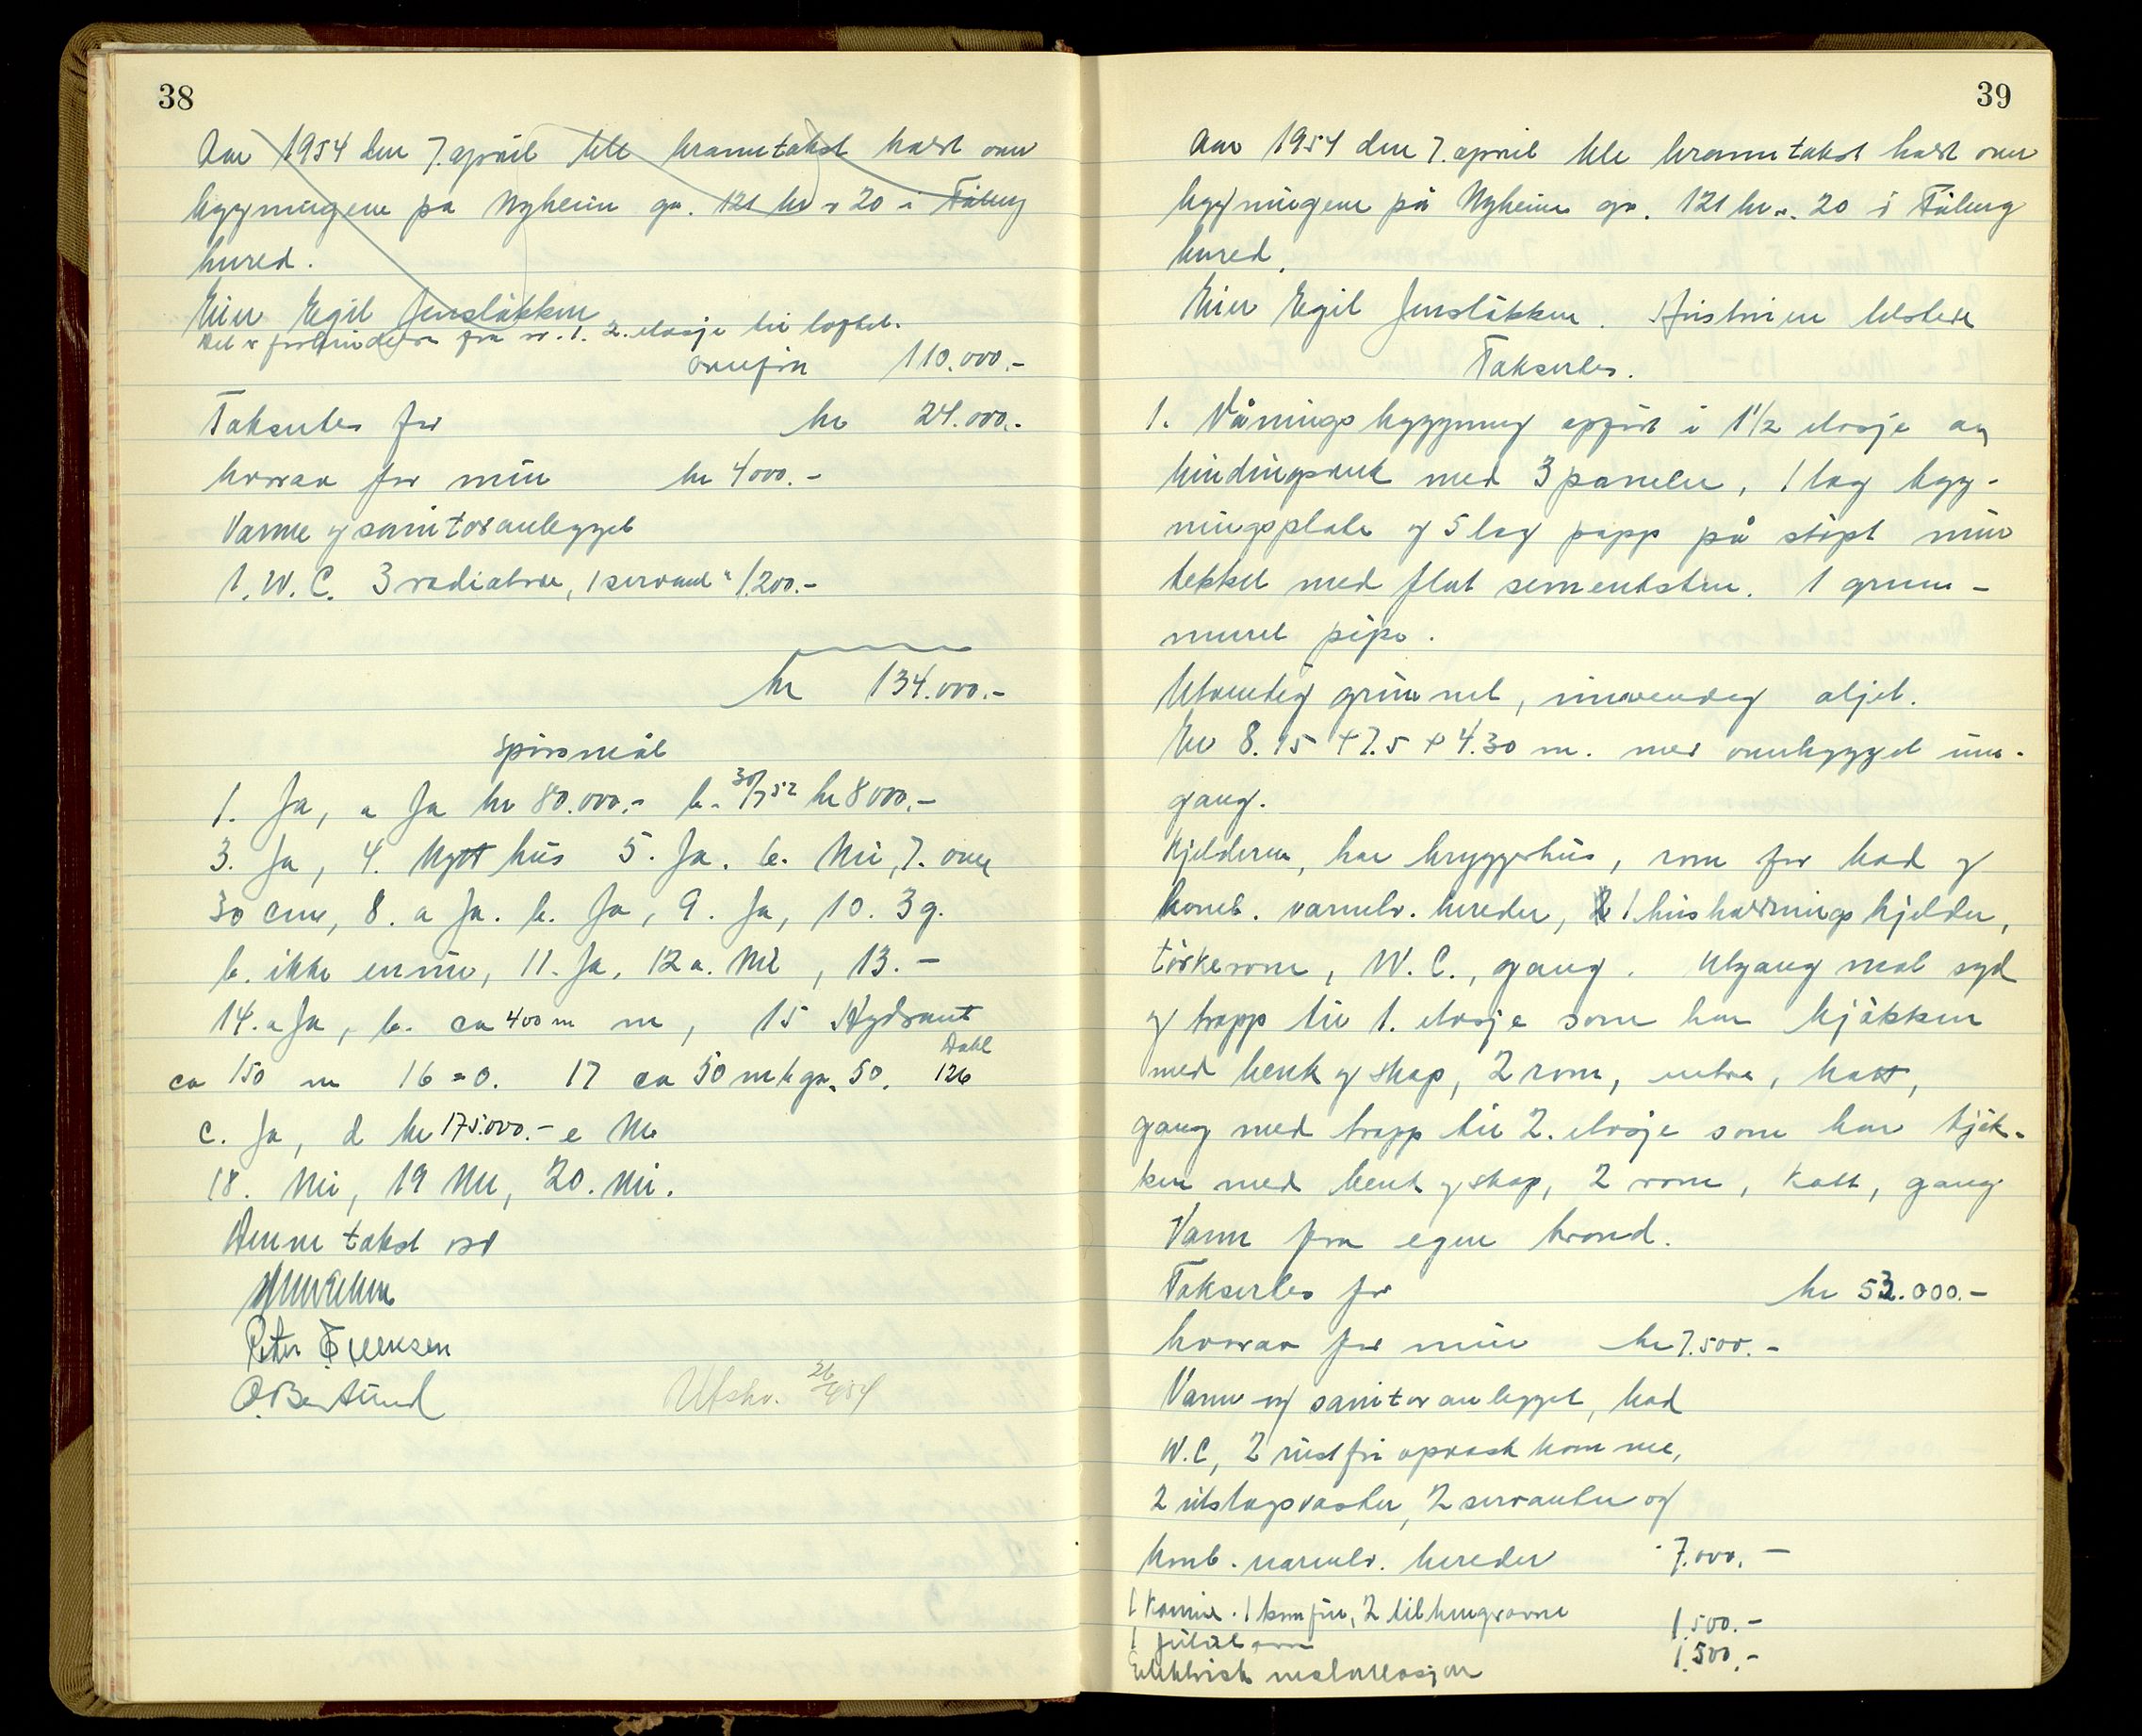 38
Aar 1954 den 7. april ble branntakst holdt over
bygningene på Nyheim gn. 121 br. 20 i Fåberg
herred.
Eier Egil Jensløkken
Det er forbindelse fra nr. 1. 2. etasje til loftet.
overført 110.000.-
Takseres for kr 24.000.-
hvorav for mur kr 4000.-
Varme og sanitæranlegget
1. W.C. 3 radiatorer, 1 servant " 1.200.-
kr 134.000.-
Spørsmål
1. Ja, a Ja kr 80.000.- b. 30/7 52 kr 8000.-
3. Ja, 4. Nytt hus 5. Ja. 6. Nei, 7. over
30 cm, 8. a Ja. b. Ja, 9. Ja, 10. 3 g.
b. ikke ennu, 11. Ja, 12 a. Nei, 13. -
14. a Ja, b. ca 400 m m, 15 Hydrant
ca 150 m 16 = 0. 17 ca 50 m b gn. 50. Dahl 126
c. Ja, d kr 175.000.- e Nei
18. Nei, 19 Nei, 20. Nei.
Denne takst osv
Peter Evensen
Utskr. 26/4 54
39
Aar 1954 den 7. april ble branntakst holdt over
bygningene på Nyheim gn. 121 br. 20 i Fåberg
herred.
Eier Egil Jensløkken. Hustruen tilstede
Taksertes.
1. Våningsbygning oppført i 1 1/2 etasje av
bindingsverk med 3 paneler, 1 lag byg-
ningsplate og 5 lag papp på støpt mur
tekket med flat sementsten. 1 grunn-
muret pipe.
Utvendig grunnet, innvendig oljet.
Er 8.15 + 7.5 + 4.30 m. med overbygget inn-
gang.
Kjelderen, har bryggerhus, rom for bad og
komb. varmtv. bereder, 1 husholdningskjelder,
tørkerom, W.C., gang. Utgang mot syd
og trapp til 1. etasje som har kjøkken
med benk og skap, 2 rom, entre, kott,
gang med trapp til 2. etasje som har kjøk-
ken med benk og skap, 2 rom, kott, gang
Vann fra egen brønd.
Taksertes for kr 53.000.-
hvorav for mur kr 7.500.-
Varme og sanitæranlegget, bad
W.C, 2 rustfri oppvaskkummer,
2 utslagsvasker, 2 servanter og
komb. varmtv. bereder " 7.000.-
1 kamin. 1 komfur, 2 tilhengsovne
1.500.-
Elektrisk installasjon 1.500.-